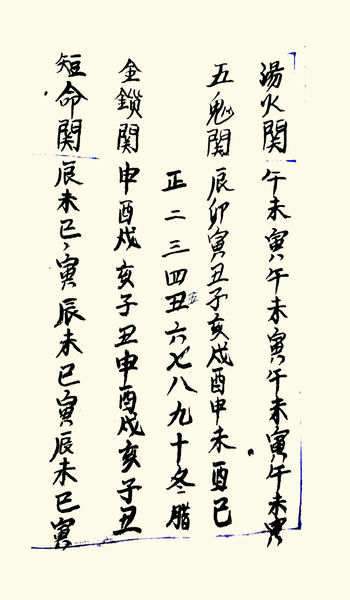 湯火関 午未寅午未寅午未寅午未寅
五鬼関 辰卯寅丑子亥戌酉申未酉巳
正二三四丑五六七八九十冬腊
金鎖関 申酉戌亥子丑申酉戌亥子丑
短命関 辰未巳寅辰未巳寅辰未巳寅